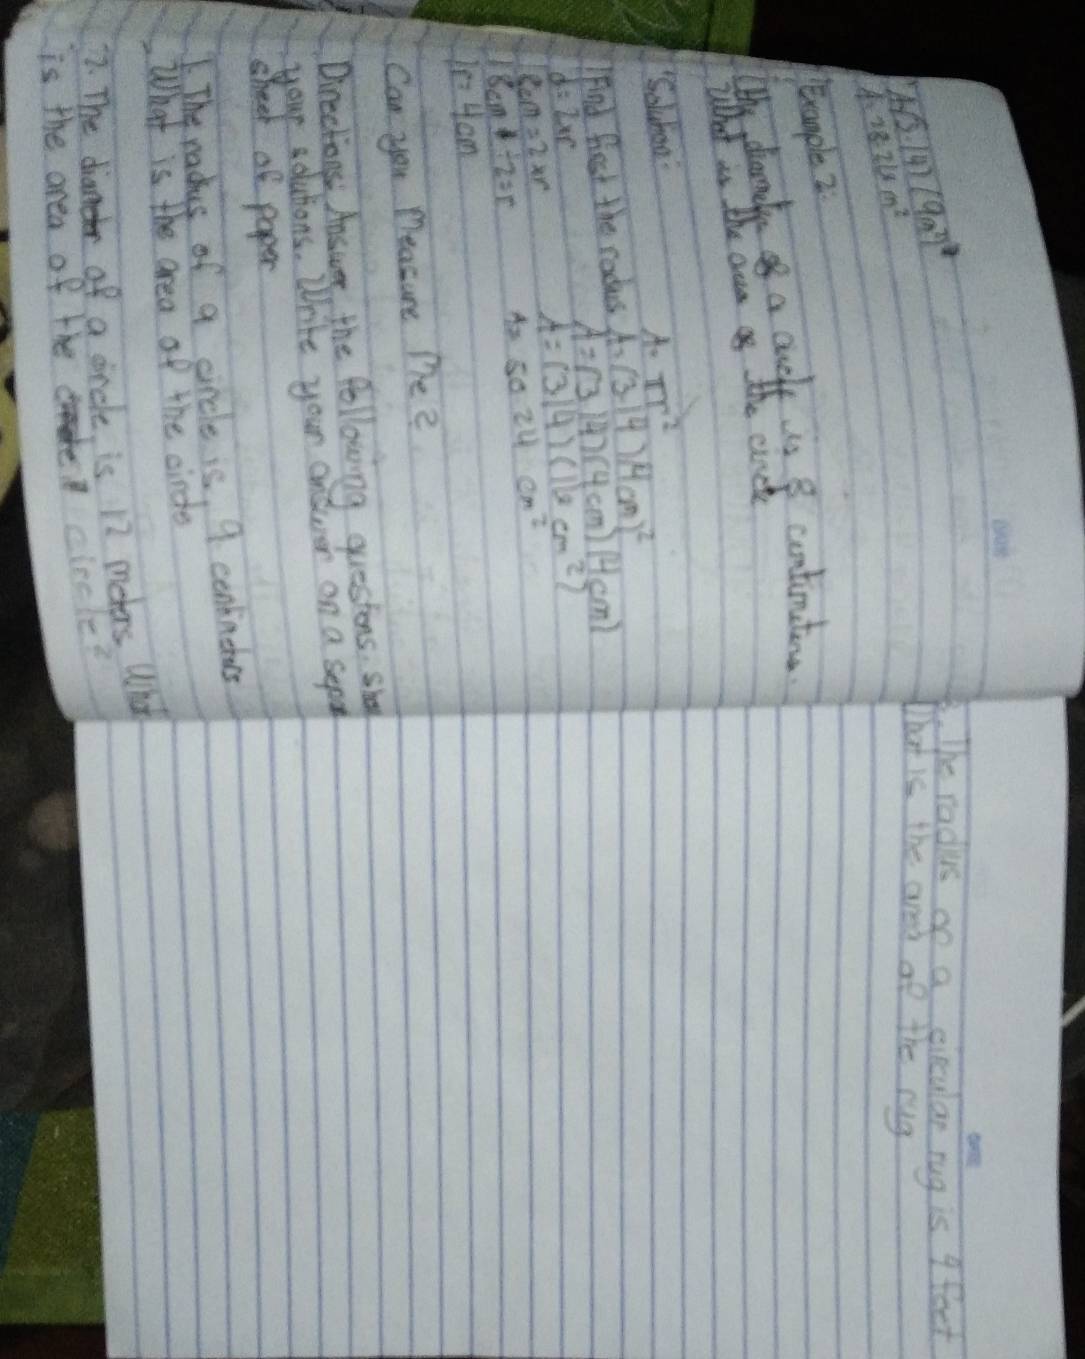 A=(3.14) (9m²)
A=28.26 m²
Example 2:
The diameter of a circle is 8 centimeters.
What is the area of the circle
Solution:
A=πr²
Find first the radius A=(3.14)(4cm)²
d=2xr A=(3.14)(4cm)(4cm)
8cm=2xr A=(3.14)(16cm²)
8cm÷2=r A=50.24 cm²
r=4cm
Can you Measure Me?
Directions: Answer the following questions. Show
your solutions. Write your answer on a separa
sheet of paper
1. The radius of a circle is 9 centimeters
What is the area of the circle
2. The diameter of a circle is 12 meters. What
is the area of the circle?
3. The radius of a circular rug is 4 feet
What is the area of the rug
DATE